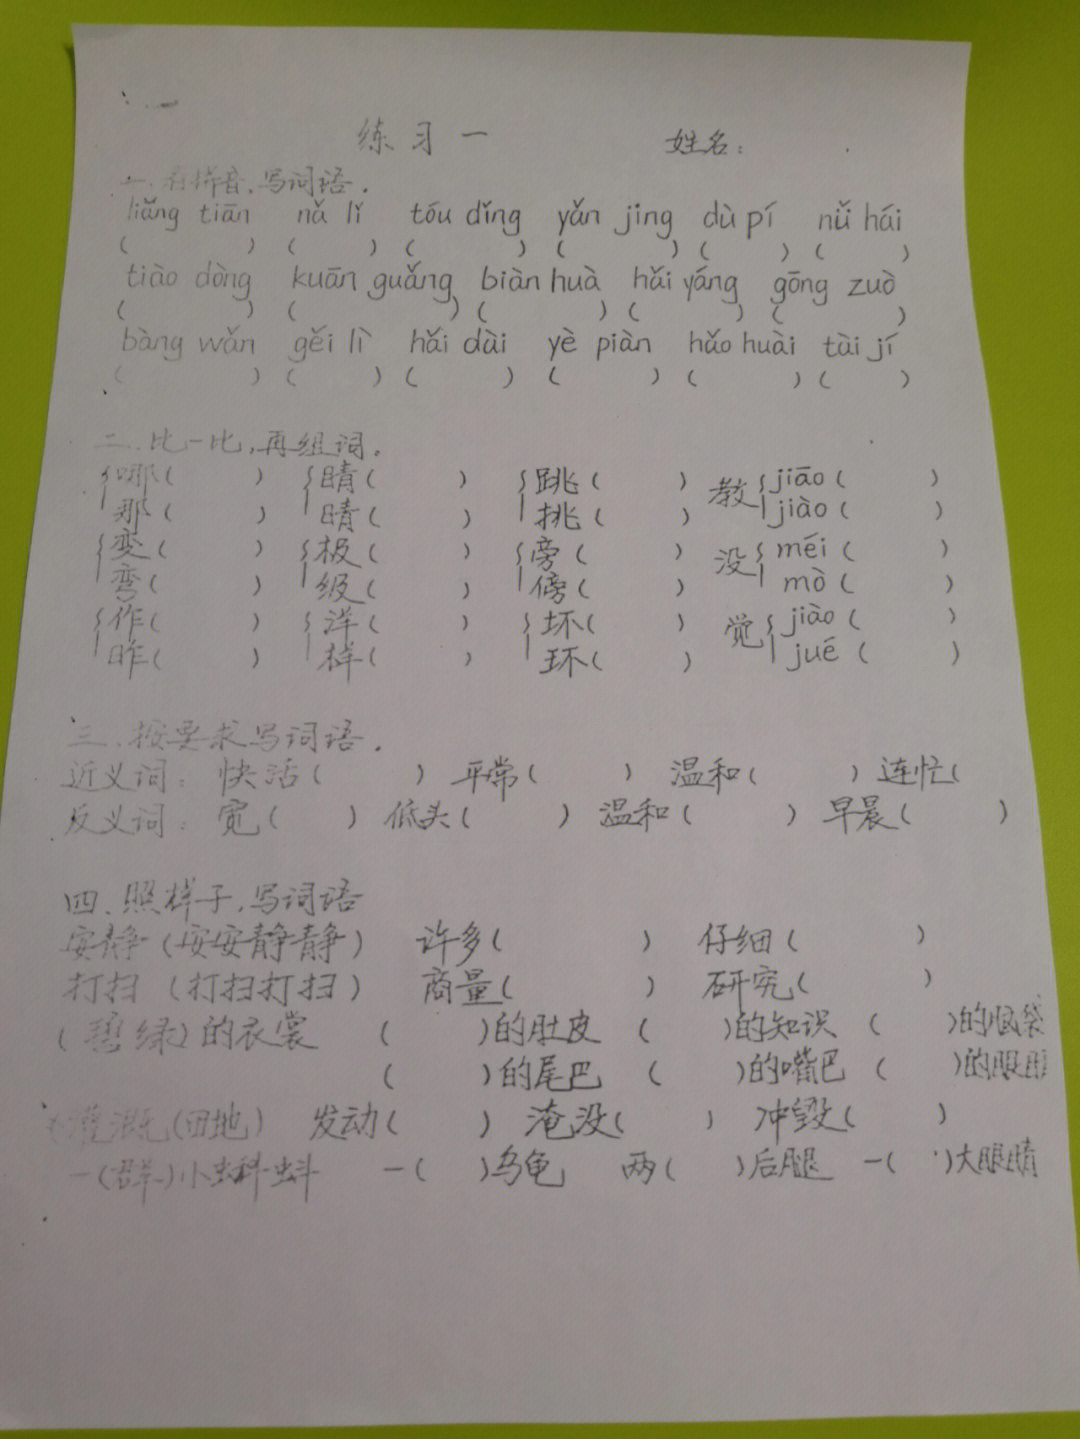 练习一 姓名：
一.看拼音,写词语.
liǎng tiān nǎ lǐ tóu dǐng yǎn jing dù pí nǚ hái
( ) ( ) ( ) ( ) ( ) ( )
tiào dòng kuān guǎng biàn huà hǎi yáng gōng zuò
( ) ( ) ( ) ( ) ( )
bàng wǎn gěi lì hǎi dài yè piàn hǎo huài tài jí
( ) ( ) ( ) ( ) ( ) ( )
二.比一比,再组词.
哪( ) 睛( ) 跳( ) 教 jiāo( )
那( ) 晴( ) 挑( ) jiào( )
变( ) 极( ) 旁( ) 没 méi( )
弯( ) 级( ) 傍( ) mò( )
作( ) 洋( ) 坏( ) 觉 jiào( )
昨( ) 样( ) 环( ) jué( )
三.按要求写词语.
近义词: 快活( ) 平常( ) 温和( ) 连忙(
反义词: 宽( ) 低头( ) 温和( ) 早晨( )
四.照样子,写词语
安静(安安静静) 许多( ) 仔细( )
打扫(打扫打扫) 商量( ) 研究( )
(碧绿)的衣裳 ( )的肚皮 ( )的知识 ( )的脑袋
( )的尾巴 ( )的嘴巴 ( )的眼睛
灌溉(田地) 发动( ) 淹没( ) 冲毁( )
一(群)小蝌蚪 一( )乌龟 两( )后腿 一( )大眼睛